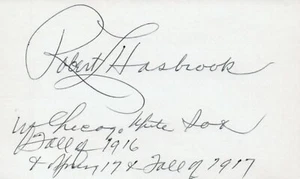 Robert L Hasbrook
w Chicago White Sox
Fall of 1916
& Spring 17 & Fall of 1917